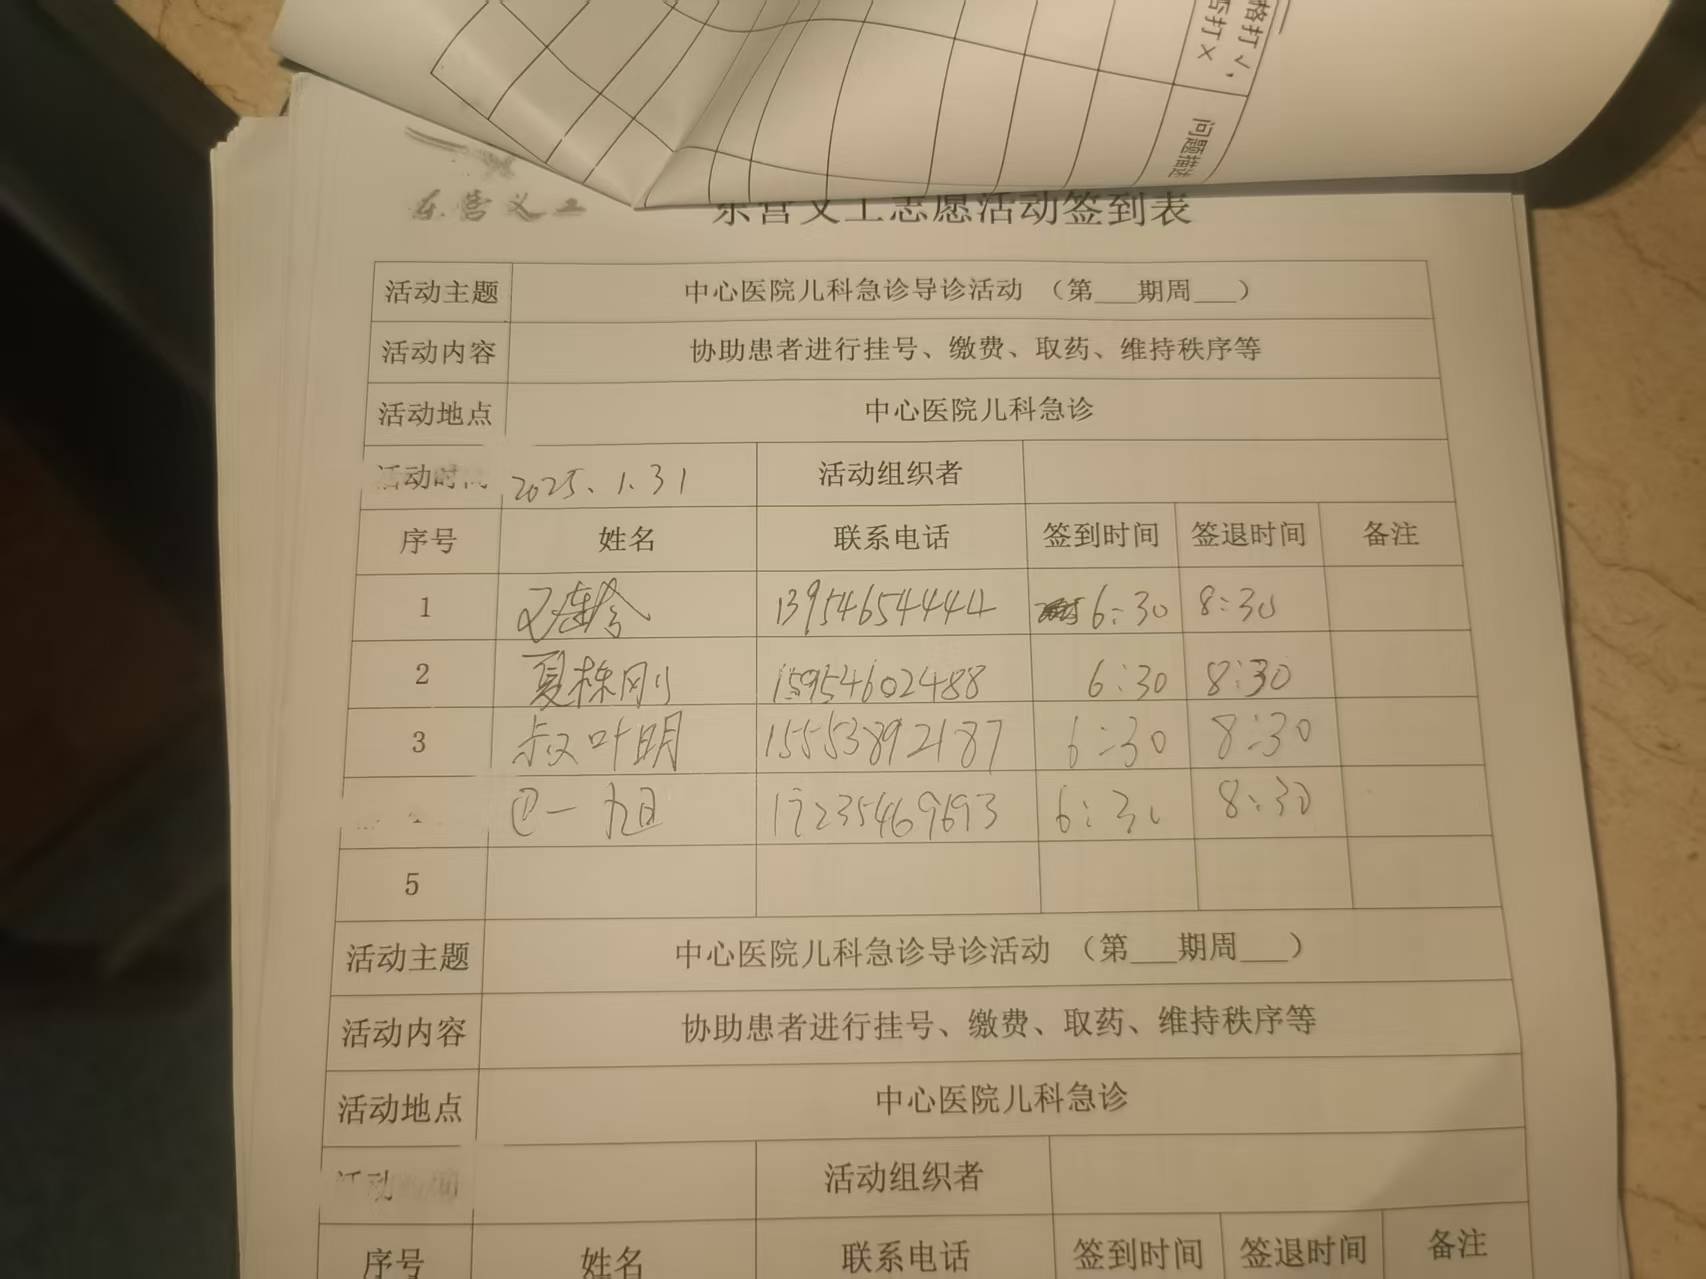 格打√,
否打×
问题描述
东营义工
东营义工志愿活动签到表
活动主题 中心医院儿科急诊导诊活动 （第___期周___）
活动内容 协助患者进行挂号、缴费、取药、维持秩序等
活动地点 中心医院儿科急诊
活动时间 2025.1.31 活动组织者
序号 姓名 联系电话 签到时间 签退时间 备注
1 13954654444 6:30 8:30
2 夏栋刚 15954602488 6:30 8:30
3 叶明 15553892187 6:30 8:30
一 旭 17235469693 6:30 8:30
5
活动主题 中心医院儿科急诊导诊活动 （第___期周___）
活动内容 协助患者进行挂号、缴费、取药、维持秩序等
活动地点 中心医院儿科急诊
活动时间 活动组织者
序号 姓名 联系电话 签到时间 签退时间 备注